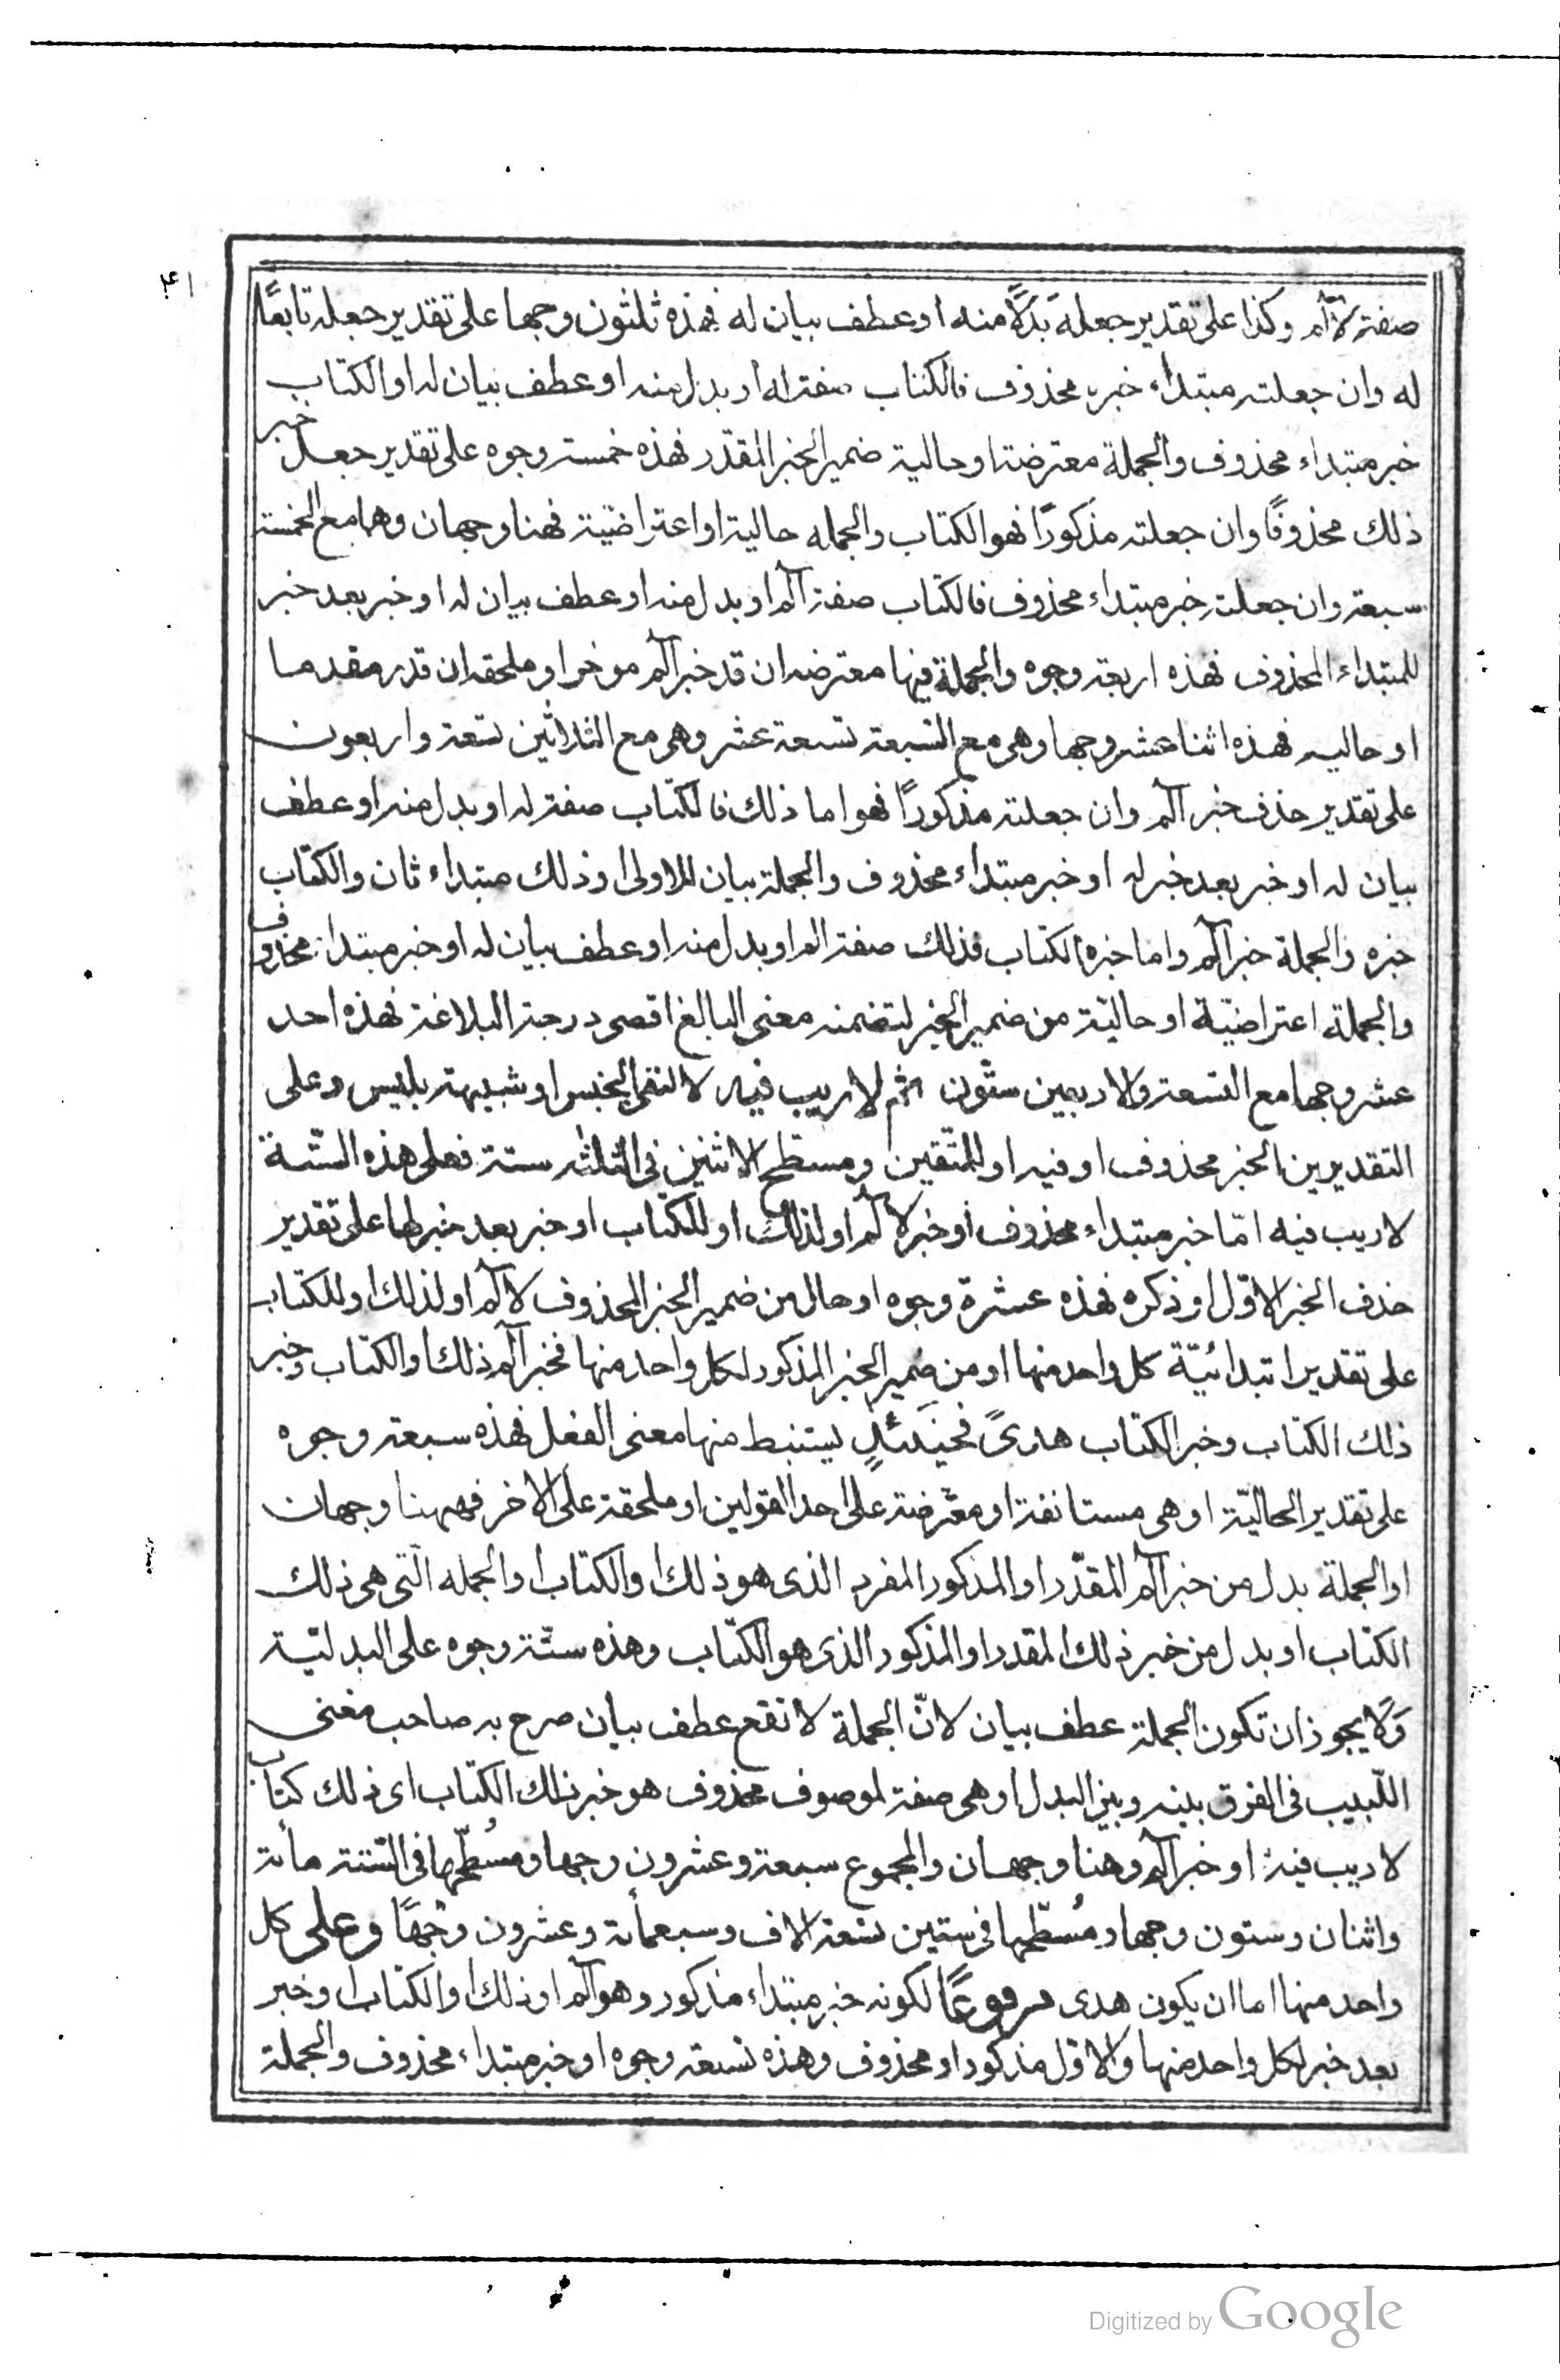 صفة لآلم وكذا على تقدير جعله بدلاً منه او عطف بيان له فهذه ثلثون وجها على تقدير جعله تابعًا
له وان جعلته مبتداء خبره محذوف فالكتاب صفة له او بدل منه او عطف بيان له او الكتاب
خبر مبتداء محذوف والجملة معترضة او حالية ضمير الخبر المقدر فهذه خمسة وجوه على تقدير جعل خبر
ذلك محذوفًا وان جعلته مذكورًا فهو الكتاب والجمله حالية او اعتراضية فهنا وجهان وهما مع الخمسة
سبعة وان جعلته خبر مبتداء محذوف فالكتاب صفة آلم او بدل منه او عطف بيان له او خبر بعد خبر
للمبتداء المحذوف فهذه اربعة وجوه والجملة فيها معترضه ان قدر خبر آلم موخرا وملحقه ان قدر مقدما
او حاليه فهذه اثنا عشر وجها وهى مع السبعة تسعة عشر وهى مع الثلاثين تسعة واربعون
على تقدير حذف خبر آلم وان جعلته مذكورًا فهو اما ذلك فالكتاب صفة له او بدل منه او عطف
بيان له او خبر بعد خبر له او خبر مبتداء محذوف والجملة بيان للاولى او ذلك مبتداء ثان والكتاب
خبره والجملة خبر آلم واما خبره الكتاب فذلك صفة الم او بدل منه او عطف بيان له او خبر مبتدا محذوف
والجملة اعتراضيّة او حاليّة من ضمير الخبر لتضمنه معنى البالغ اقصى درجة البلاغة فهذه احد
عشر وجها مع التسعة والاربعين ستّون ثم لا ريب فيه لا لنفى الجنس او شبيهة بليس وعلى
التقديرين الخبر محذوف او فيه او للمتّقين ومسطّح الاثنين فى الثلثه ستة فعلى هذه الستّة
لا ريب فيه امّا خبر مبتداء محذوف او خبر لآلم او لذلك او للكتاب او خبر بعد خبر لها على تقدير
حذف الخبر الاوّل او ذكره فهذه عشرة وجوه او حال من ضمير الخبر المحذوف لآلم او لذلك او للكتاب
على تقدير ابتدائيّة كل واحد منها او من ضمير الخبر المذكور لكل واحد منها فخبر آلم ذلك او الكتاب وخبر
ذلك الكتاب وخبر الكتاب هدىً فحينئذٍ يستنبط منها معنى الفعل فهذه سبعة وجوه
على تقدير الحاليّة او هى مستانفة او معترضة على احد القولين او ملحقة على الاخر فههنا وجهان
او الجملة بدل من خبر آلم المقدّر او المذكور المفرد الذى هو ذلك او الكتاب او الجمله الّتى هى ذلك
الكتاب او بدل من خبر ذلك المقدر او المذكور الذى هو الكتاب وهذه ستّة وجوه على البدليّة
وَلا يجوز ان تكون الجملة عطف بيان لانّ الجملة لا تقع عطف بيان صرح به صاحب مغنى
اللّبيب فى الفرق بينه وبين البدل او هى صفة لموصوف محذوف هو خبر ذلك الكتاب اى ذلك كتاب
لا ريب فيه او خبر آلم وهنا وجهان والمجموع سبعة وعشرون وجها ومُسطّحها فى الستّة مأئة
واثنان وستون وجها ومُسطّحها فى ستين تسعة الاف وسبعمأئة وعشرون وجهًا وعلى كل
واحد منها اما ان يكون هدى مرفوعًا لكونه خبر مبتداء مذكور وهو آلم او ذلك او الكتاب او خبر
بعد خبر لكل واحد منها والاول مذكور او محذوف وهذه تسعة وجوه او خبر مبتداء محذوف والجملة
Digitized by Google